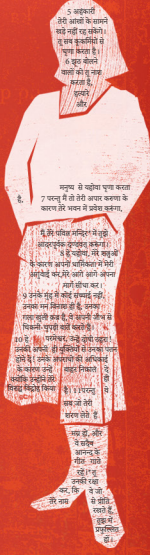 5 अहंकारी
तेरी आंखों के सामने
खड़े नहीं रह सकेंगे।
तू सब कुकर्मियों से
घृणा करता है।
6 झूठ बोलने
वालों को तू नाश
करता है,
हत्यारे
और
मनुष्य से यहोवा घृणा करता
है, 7 परन्तु मैं तो तेरी अपार करुणा के
कारण तेरे भवन में प्रवेश करूंगा,
मैं तेरे पवित्र मन्दिर में तुझे
आदरपूर्वक दण्डवत् करूंगा।
8 हे यहोवा, मेरे शत्रुओं
के कारण अपनी धार्मिकता में मेरी
अगुवाई कर, मेरे आगे आगे अपना
मार्ग सीधा कर।
9 उनके मुंह में कोई सच्चाई नहीं,
उनका मन विनाश ही है, उनका
गला खुली कब्र है, वे अपनी जीभ से
चिकनी-चुपड़ी बातें करते हैं।
10 हे परमेश्वर, उन्हें दोषी ठहरा!
उनकी अपनी ही युक्तियों से उनका पतन
होने दे! उनके अपराधों की अधिकाई
के कारण उन्हें बाहर निकाल दे,
क्योंकि उन्होंने तेरे
विरुद्ध विद्रोह किया है। 11 परन्तु
सब जो तेरी
शरण लेते हैं,
मग्न हों, और
वे सदैव
आनन्द के
गीत गाते
रहें। तू
उनकी रक्षा
कर, कि वे जो
तेरे नाम से प्रीति
रखते हैं,
तुझ में
प्रफुल्लित
हों।